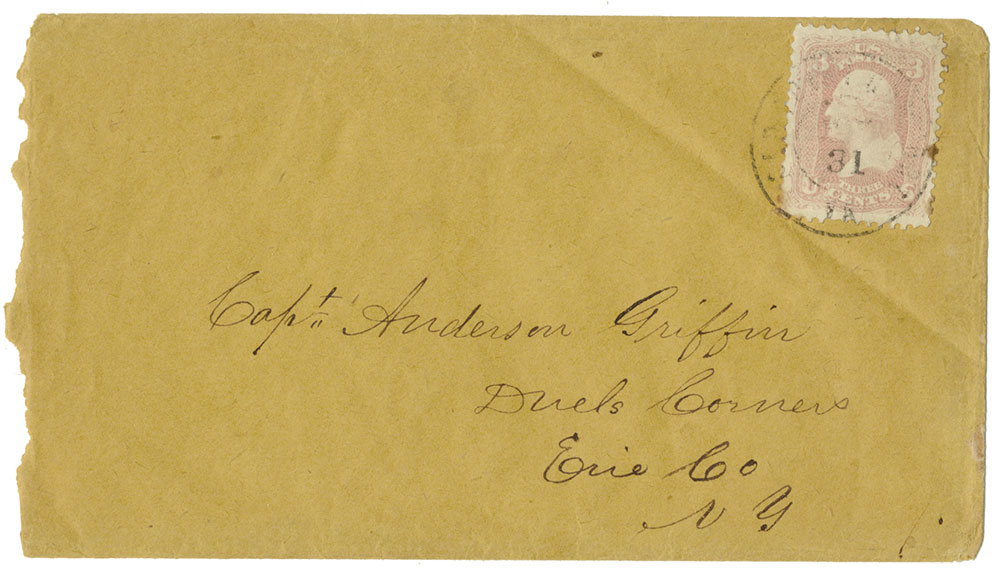 3 U.S. 3
POSTAGE
31
THREE
CENTS
VA
Capt. Anderson Griffin
Duels Corners
Erie Co
N Y